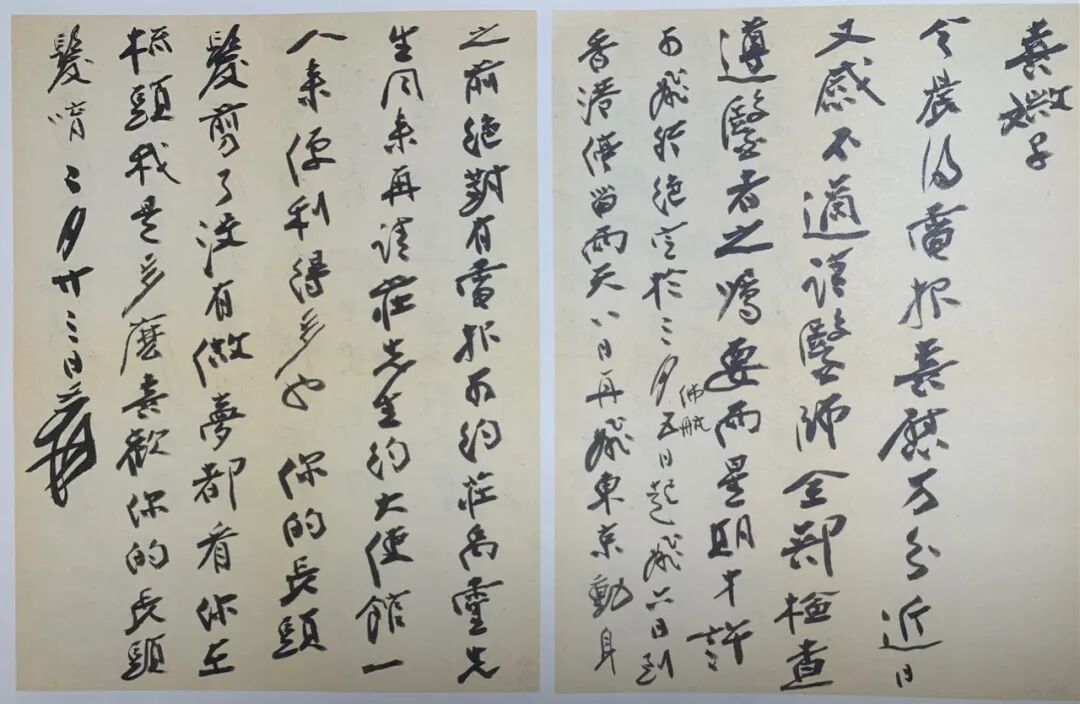 喜媺子
今晨得電报喜慰万分近日
又感不適請醫師全部檢查
遵醫者之嘱要两星期才許
可飛行絶定於三月五日起飛六日到
佛航
香港停留两天八日再飛東京動身
之前絶對有電报可約莊禹靈先
生同来再請莊先生約大使館一
人来便利得多也 你的長頭
髮剪了没有做夢都看你在
梳頭我是多麽喜歡你的長頭
髮唷二月廿三日爰